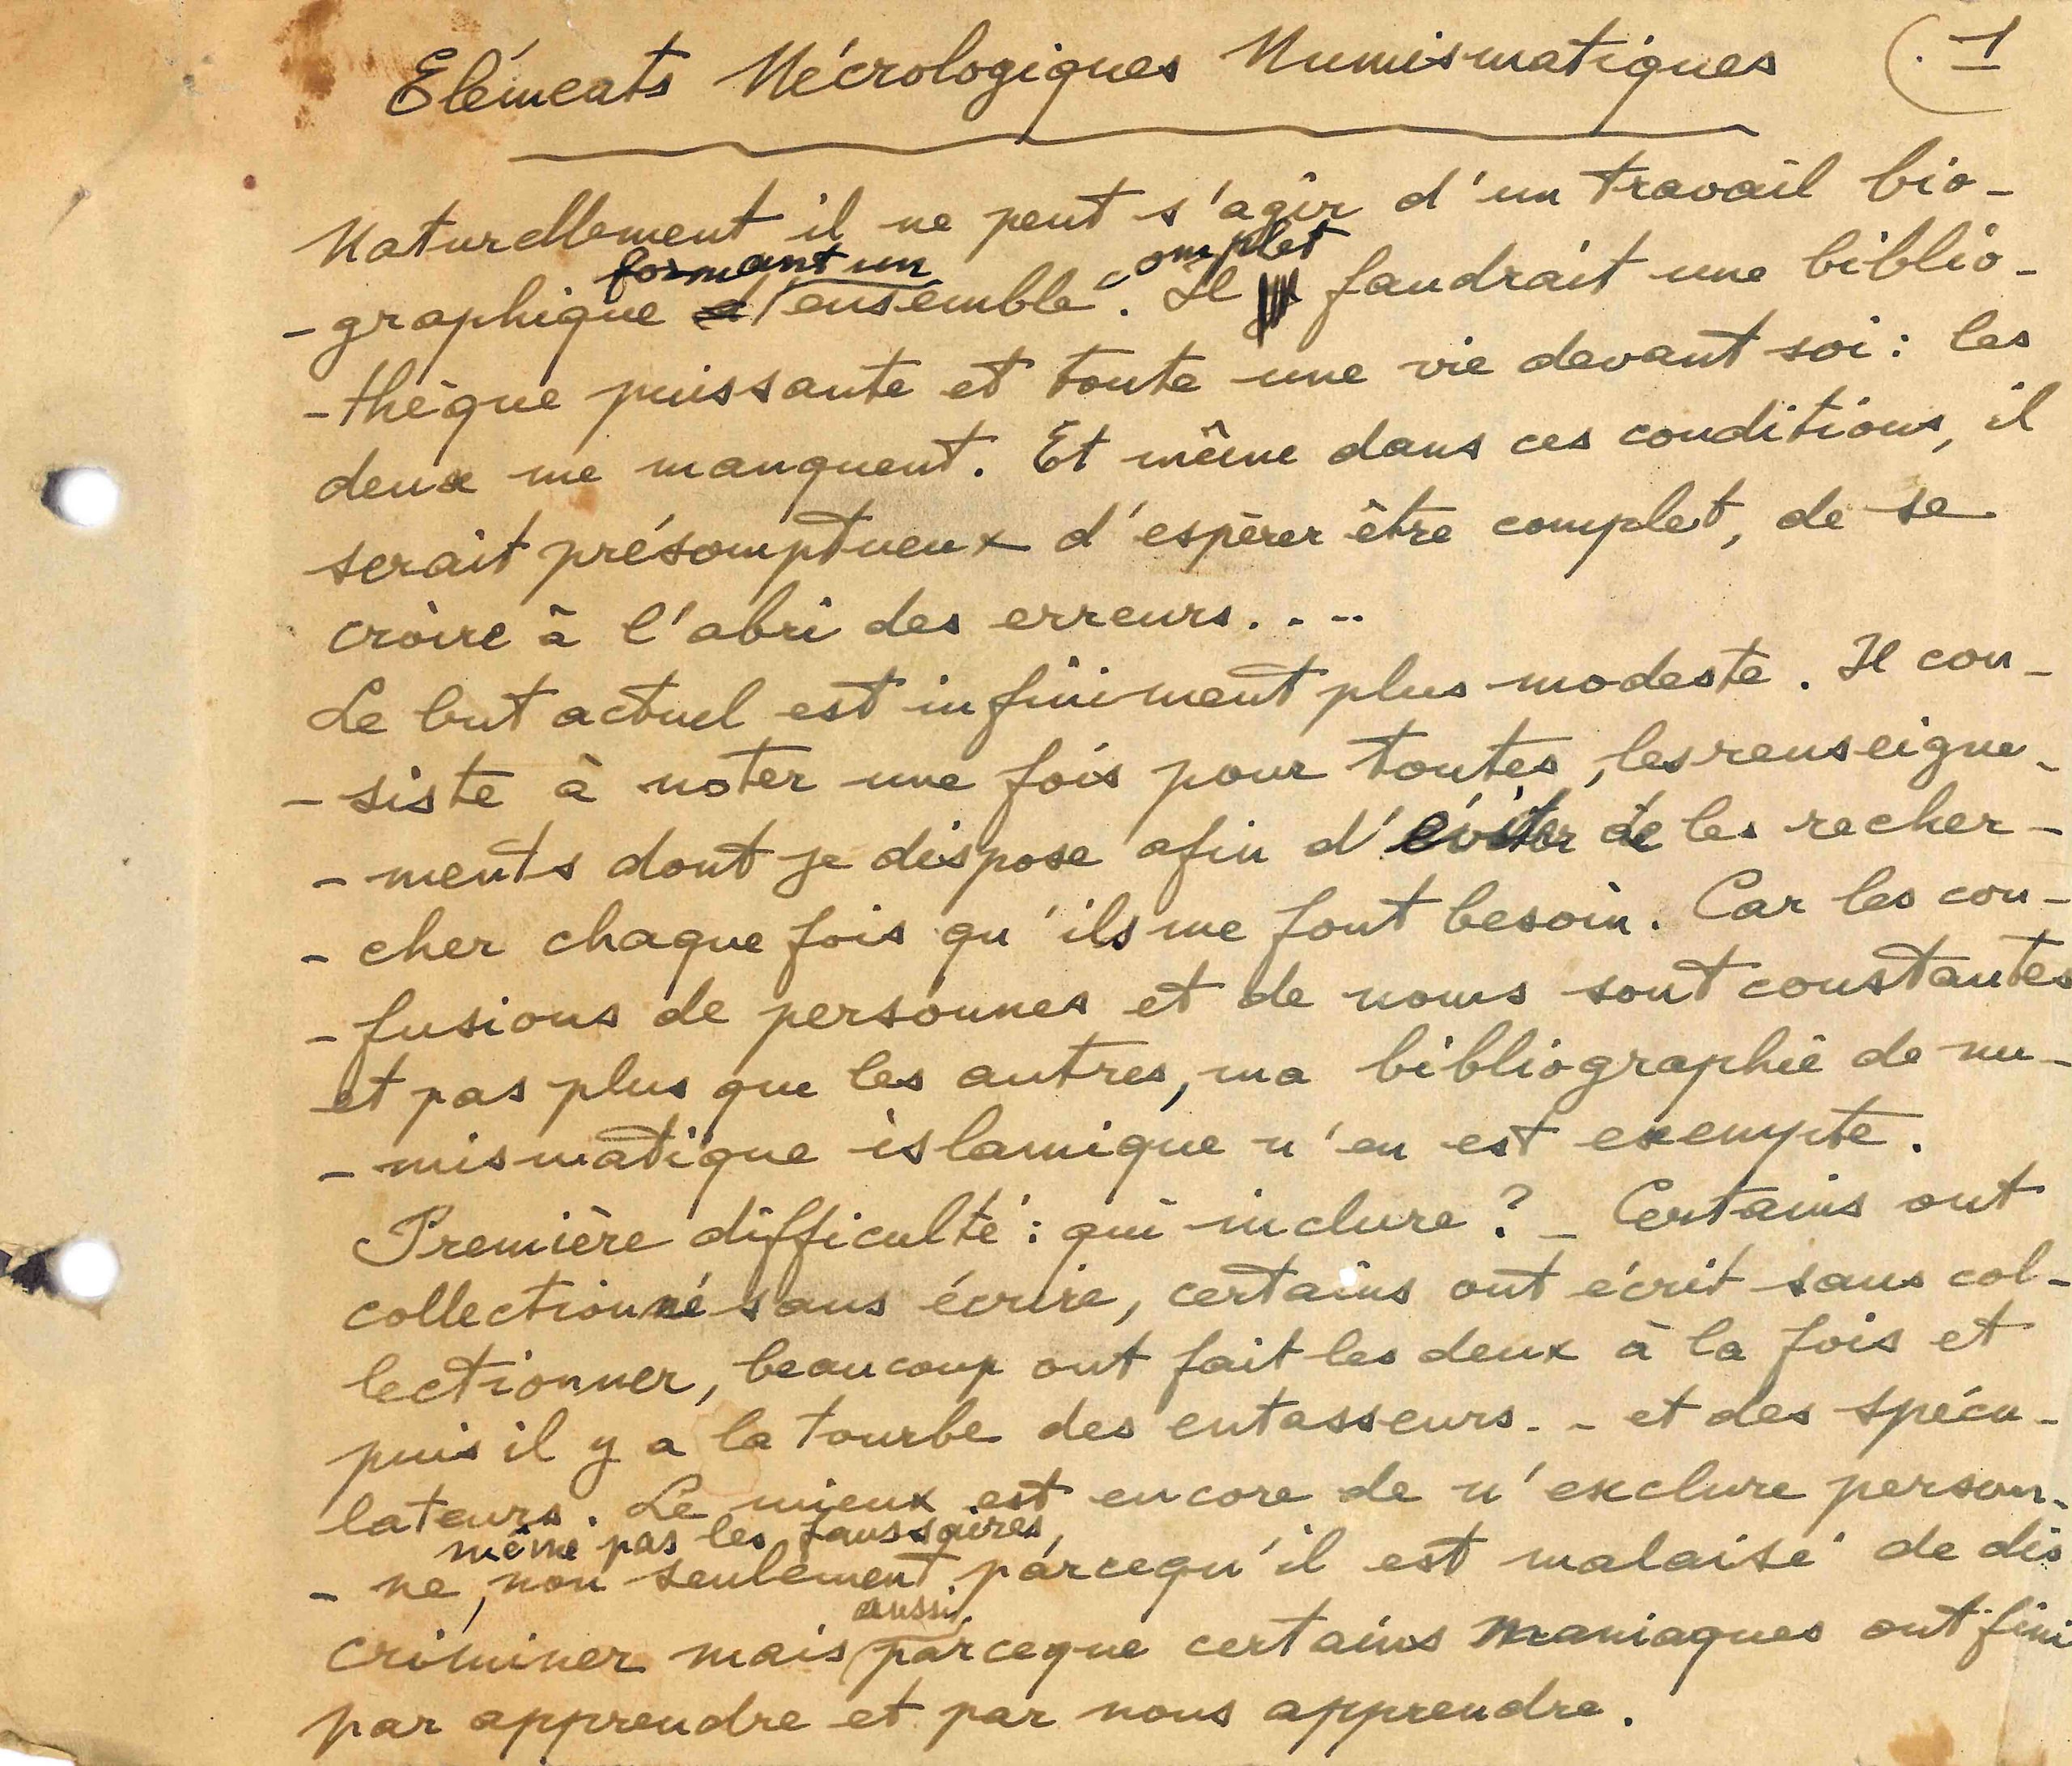 Eléments Nécrologiques Numismatiques (. 1
Naturellement il ne peut s'agir d'un travail bio-
formant un complet
- graphique d'ensemble. Il faudrait une biblio-
- thèque puissante et toute une vie devant soi : les
deux me manquent. Et même dans ces conditions, il
serait présomptueux d'espérer être complet, de se
croire à l'abri des erreurs....
Le but actuel est infiniment plus modeste. Il con-
- siste à noter une fois pour toutes, les renseigne-
- ments dont je dispose afin d'éviter de les recher-
- cher chaque fois qu'ils me font besoin. Car les con-
- fusions de personnes et de noms sont constantes
et pas plus que les autres, ma bibliographie de nu-
- mismatique islamique n'en est exempte.
Première difficulté : qui inclure ? - Certains ont
collectionné sans écrire, certains ont écrit sans col-
lectionner, beaucoup ont fait les deux à la fois et
puis il y a la tourbe des entasseurs.. et des spécu-
lateurs. Le mieux est encore de n'exclure person-
même pas les faussaires,
- ne, non seulement parcequ'il est malaisé de dis
aussi
criminer mais parceque certains maniaques ont fini
par apprendre et par nous apprendre.